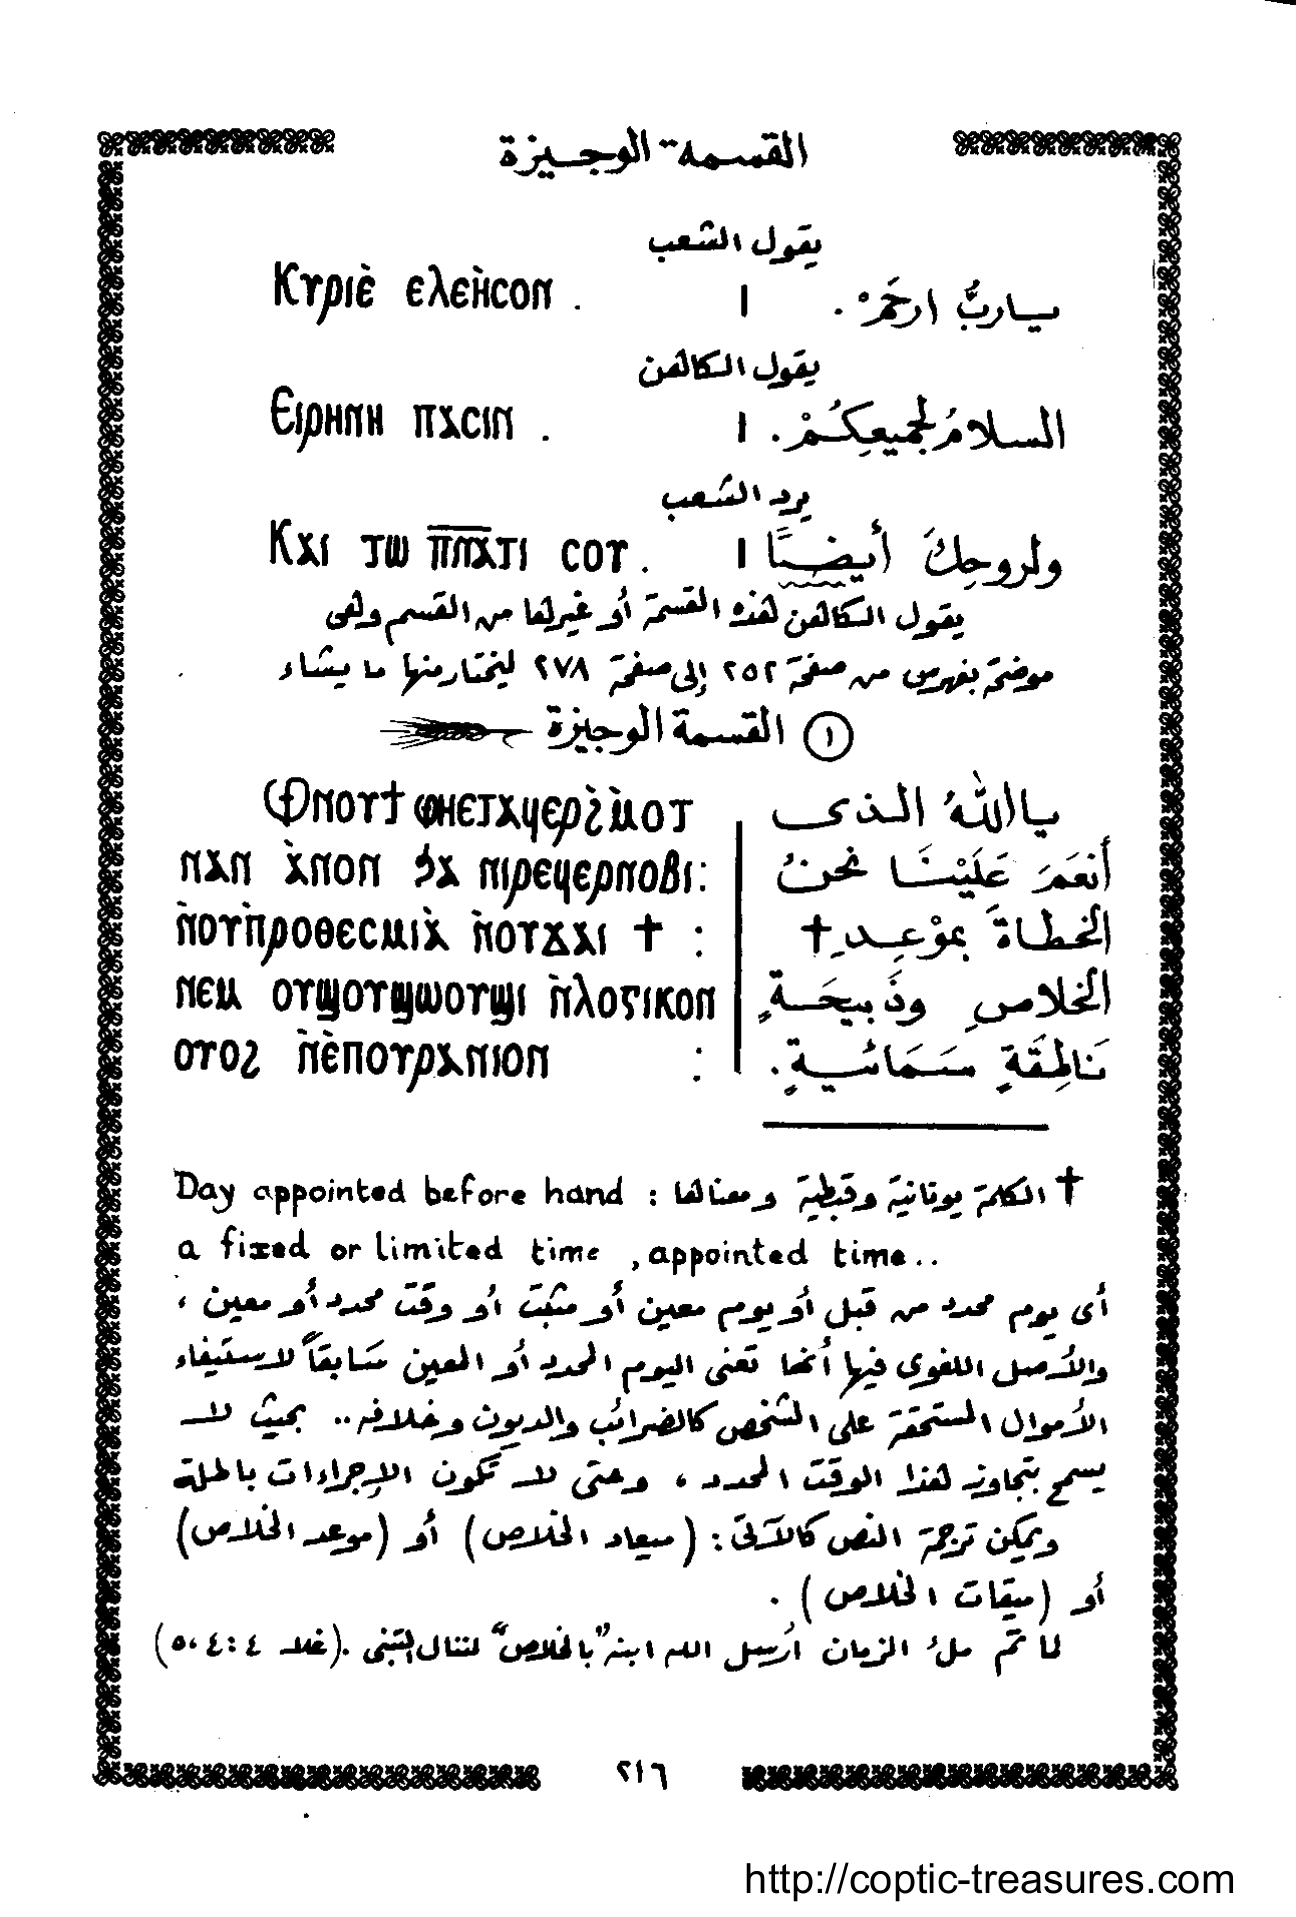 القسمة الوجيزة
يقول الشعب
Ⲕⲩⲣⲓⲉ̀ ⲉⲗⲉⲏ̀ⲥⲟⲛ . ا يا ربُّ ارحَمْ .
يقول الكاهن
Ⲉⲓⲣⲏⲛⲏ ⲡⲁⲥⲓⲛ . ا السلامُ لجميعِكُمْ .
يرد الشعب
Ⲕⲁⲓ ⲧⲱ ⲡ̅ⲛ̅ⲁ̅ⲧⲓ ⲥⲟⲩ . ا ولروحِكَ أيضًا
يقول الكاهن هذه القسمة أو غيرها من القسم وهى
موضحة بفهرس من صفحة ٢٥٢ إلى صفحة ٢٧٨ ليختار منها ما يشاء
١ القسمة الوجيزة
Ⲫⲛⲟⲩϯ ⲫⲏⲉⲧⲁϥⲉⲣϩ̀ⲙ̀ⲟⲧ يا اللهُ الذى
ⲛⲁⲛ ⲁ̀ⲛⲟⲛ ϧⲁ ⲛⲓⲣⲉϥⲉⲣⲛⲟⲃⲓ: أنعَمَ عَلَيْنَا نحنُ
ⲛ̀ⲟⲩⲡ̀ⲣⲟⲑⲉⲥⲙⲓⲁ̀ ⲛ̀ⲟⲩϫⲁⲓ † : الخطاةَ بموْعِدِ†
ⲛⲉⲙ ⲟⲩϣⲟⲩϣⲱⲟⲩϣⲓ ⲛ̀ⲗⲟⲅⲓⲕⲟⲛ الخلاصِ وذَبيحَةٍ
ⲟⲩⲟϩ ⲛ̀ⲉ̀ⲡⲟⲩⲣⲁⲛⲓⲟⲛ : نَاطِقَةٍ سَمَائيةٍ .
† الكلمة يونانية وقبطية ومعناها : Day appointed before hand
a fixed or limited time , appointed time ..
أى يوم محدد من قبل أو يوم معين أو مثبت أو وقت محدد أو معين ،
والأصل اللغوى فيها أنها تعنى اليوم المحدد أو المعين سَابقاً لاستيفاء
الأموال المستحقة على الشخص كالضرائب والديون وخلافه .. بحيث لا
يسمح بتجاوز هذا الوقت المحدد ، وحتى لا تكون الإجراءات باطلة
ويمكن ترجمة النص كالآتى : (ميعاد الخلاص) أو (موعد الخلاص)
أو (ميقات الخلاص) .
لما تم ملئ الزمان أرسل الله ابنه "بالخلاص" لننال التبنى . (غلا ٤:٤،٥)
٢١٦
http://coptic-treasures.com